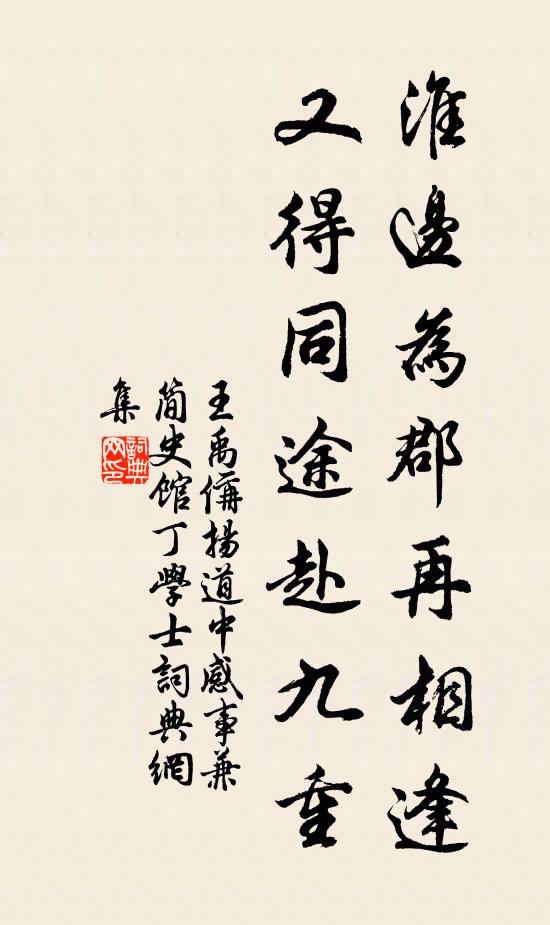 淮邊為郡再相逢
又得同途赴九重
王禹偁揚道中感事兼
简史馆丁學士詞典網
集
詞典網印